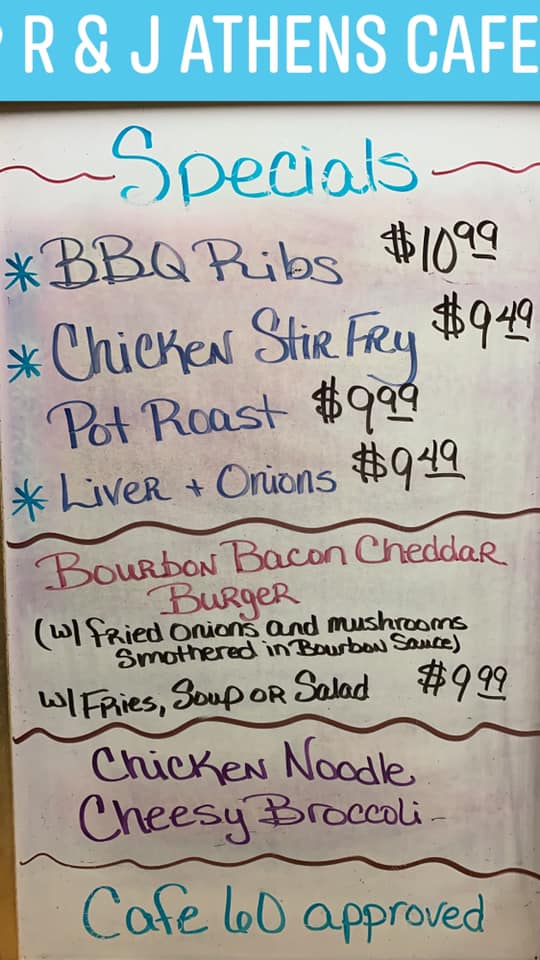 R & J ATHENS CAFE
Specials
* BBQ Ribs $10.99
* Chicken Stir Fry $9.49
Pot Roast $9.99
* Liver + Onions $9.49
Bourbon Bacon Cheddar
Burger
(w/ fried onions and mushrooms
Smothered in Bourbon Sauce)
w/ Fries, Soup or Salad $9.99
Chicken Noodle
Cheesy Broccoli -
Cafe 60 approved